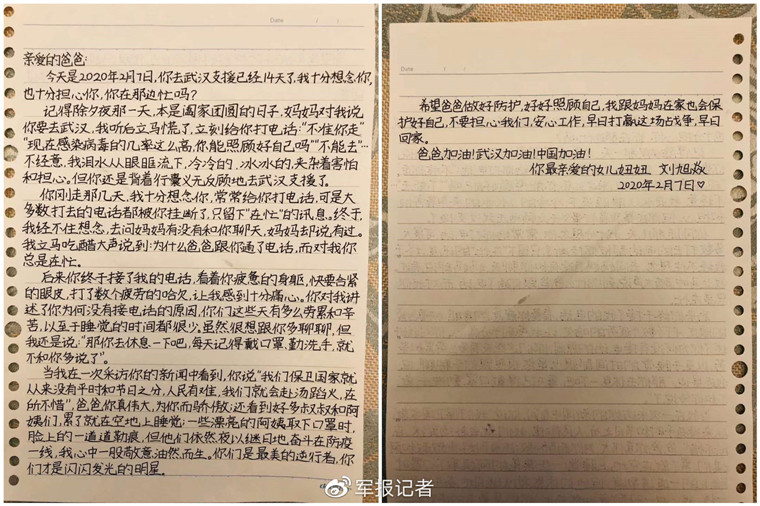 Date
亲爱的爸爸:
今天是2020年2月7日,你去武汉支援已经14天了,我十分想念你,
也十分担心你,你在那边忙吗?
记得除夕夜那一天,本是阖家团圆的日子,妈妈对我说,
你要去武汉,我听后立马慌了,立刻给你打电话:“不准你走”
“现在感染病毒的几率这么高,你能照顾好自己吗”“不能去”…
不经意,我泪水从眼眶流下,冷冷的,冰冰的,夹杂着害怕
和担心。但你还是背着行囊义无反顾地去武汉支援了。
你刚走那几天,我十分想念你,常常给你打电话,可是大
多数打去的电话都被你挂断了,只留下“在忙”的讯息。终于,
我经不住想念,去问妈妈有没有和你聊天,妈妈却说,有过。
我立马吃醋大声说到:为什么爸爸跟你通了电话,而对我你
总是在忙。
后来你终于接了我的电话,看着你疲惫的身躯,快要合紧
的眼皮,打了数个疲劳的哈欠,让我感到十分痛心。你对我讲
述了你为何没有接电话的原因,你们这些天有多么劳累和辛
苦,以至于睡觉的时间都很少。虽然很想跟你多聊聊,但
我还是说:“那你去休息一下吧,每天记得戴口罩,勤洗手,就
不和你多说了”。
当我在一次采访你的新闻中看到,你说“我们保卫国家就
从来没有平时和节日之分,人民有难,我们就会赴汤蹈火,在
所不惜”,爸爸你真伟大,为你而骄傲;还看到好多叔叔和阿
姨们,累了就在空地上睡觉;一些漂亮的阿姨取下口罩时,
脸上的一道道勒痕,但他们依然夜以继日地奋斗在防疫
一线,我心中一股敬意油然而生。你们是最美的逆行者,你
们才是闪闪发光的明星。
Date
希望爸爸做好防护,好好照顾自己,我跟妈妈在家也会保
护好自己,不要担心我们,安心工作,早日打赢这场战争,早日
回家。
爸爸,加油!武汉加油!中国加油!
你最亲爱的女儿妞妞 刘旭焱
2020年2月7日♡
军报记者